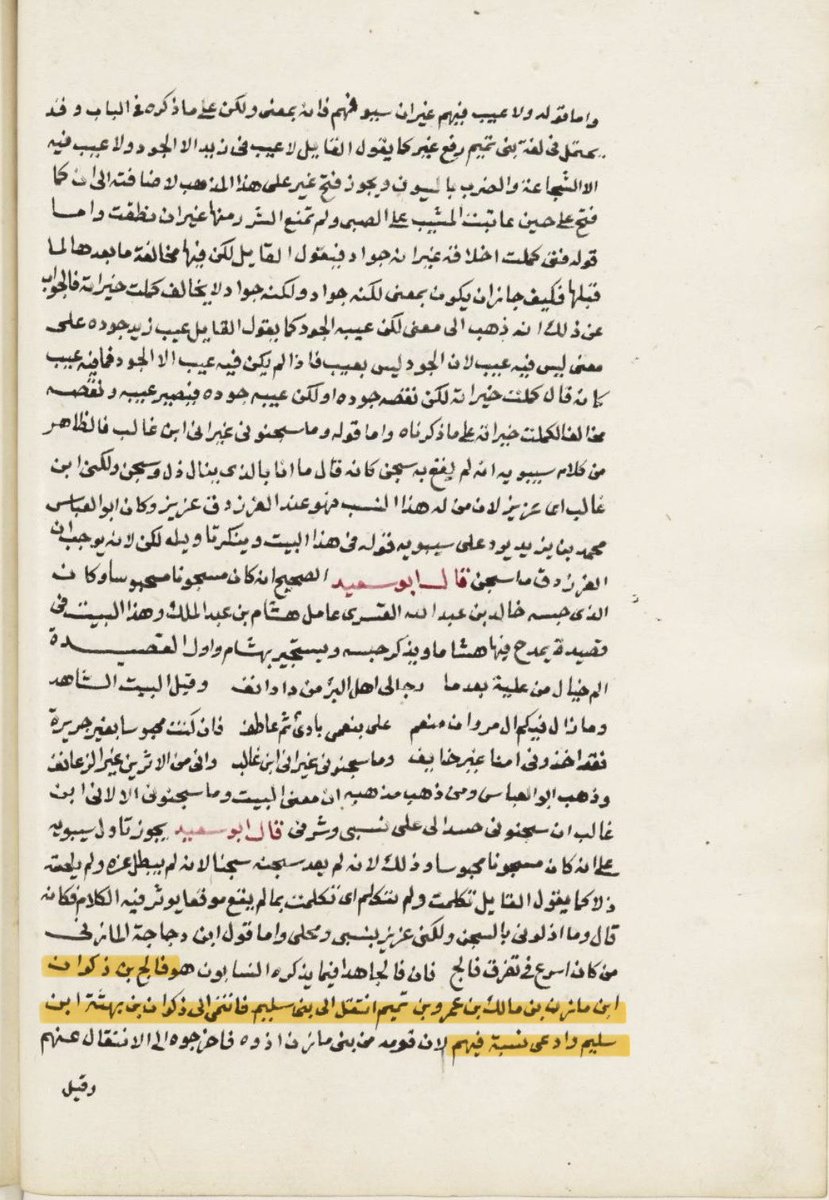 واما قوله ولا عيب فيهم غير ان سيوفهم فانه بمعنى ولكن على ما ذكره في الباب وقد
يحتمل في لغة بني تميم رفع غير كما يقول القايل لا عيب في زيد الا الجود ولا عيب فيه
الا الشجاعة والضرب بالسيوف ويجوز فتح غير على هذا المذهب لاضافته الى ان كما
فتح على حين عاتبت المشيب على الصبى ولم تمنع الشرب منها غير ان نطقت واما
قوله فتى كملت اخلاقه غير انه جواد فيقول القايل لكن فيها مخالفة ما بعدها لما
قبلها فكيف جاز ان يكون بمعنى لكنه جواد ولكنه جواد لا يخالف كملت خيراته فالجواب
عن ذلك انه ذهب الى معنى لكن عيبه الجود كما يقول القايل عيب زيد جوده على
معنى ليس فيه عيب لان الجود ليس بعيب فاذا لم يكن فيه عيب الا الجود فما فيه عيب
كانه قال كملت خيراته لكن نقصه جوده او لكن عيبه جوده فيصير عيبه ونقصه
مخالفا لكملت خيراته على ما ذكرناه واما قوله وما سجنوني غير اني ابن غالب فالظاهر
من كلام سيبويه انه لم يقع به سجن كانه قال ما انا بالذي ينال ذل وسجن ولكني ابن
غالب اي عزيز لان من له هذا النسب فهو عند الفرزدق عزيز وكان ابو العباس
محمد بن يزيد يرد على سيبويه قوله في هذا البيت وينكر تاويله لكن لانه يوجب ان
الفرزدق ما سجن قال ابو سعيد الصحيح انه كان مسجونا محبوسا وكان
الذي حبسه خالد بن عبد الله القسري عامل هشام بن عبد الملك وهذا البيت في
قصيدة يمدح فيها هشاما ويذكر حبسه ويستجير بهشام واول القصيدة
الم خيال من علية بعدما رجا لى اهل البرء من داء دانف وقبل البيت الشاهد
وما زال فيكم ال مروان منعم على بنعمى بادئ ثم عاطف فان كنت محبوسا بغير جريرة
فقد اخذوني امنا غير خايف وما سجنوني غير اني ابن غالب واني من الاثرين غير الزعانف
وذهب ابو العباس ومن ذهب مذهبه ان معنى البيت وما سجنوني الا لاني ابن
غالب ان سجنوني حسدا لي على نسبي وشرفي قال ابو سعيد يجوز تاول سيبويه
على ان كان مسجونا محبوسا وذلك لانه لم يعد سجنه سجنا لانه لم يبطل عزه ولم يلحقه
ذلا كما يقول القايل تكلمت ولم تتكلم اي تكلمت بما لم يقع موقعا يوثر فيه الكلام فكانه
قال وما اذلوني بالسجن ولكني عزيز بنسبي ومحلي واما قول ابن دجاجة المازني
من كان اسرع في تفرق فالج فان فالجا هذا فيما يذكره النسابون هو فالج بن ذكوان
ابن مازن بن مالك بن عمرو بن تميم انتقل الى بني سليم فانتمى الى ذكوان بن بهثة ابن
سليم وادعى نسبة فيهم لان قومه من بني مازن اذوه فاحرجوه الى الانتقال عنهم
وقيل